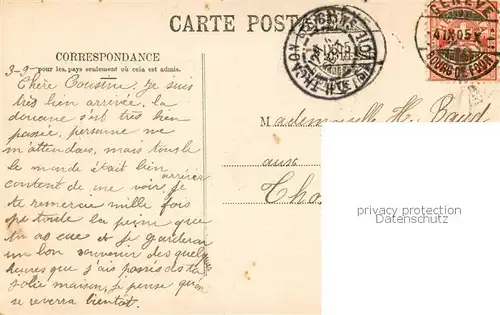 CARTE POST
CORRESPONDANCE
pour les pays seulement où cela est admis.
3-9-
Chère Cousine, Je suis
très bien arrivée, la
douane s'est très bien
passée, personne ne
m'attendais, mais tous le
le monde était bien
arrivées
content de me voir, Je
te remercie mille fois
de toute la peine que
tu as eue et je garderai
un bon souvenir des quelques
heures que j'ais passées ds ta
jolie maison, je pense qu'on
se reverra bientôt.
Mademoiselle H. Baud
aux
Tho
GENEVE
4 IX 05
BOURG DE FOUR
privacy protection
Datenschutz